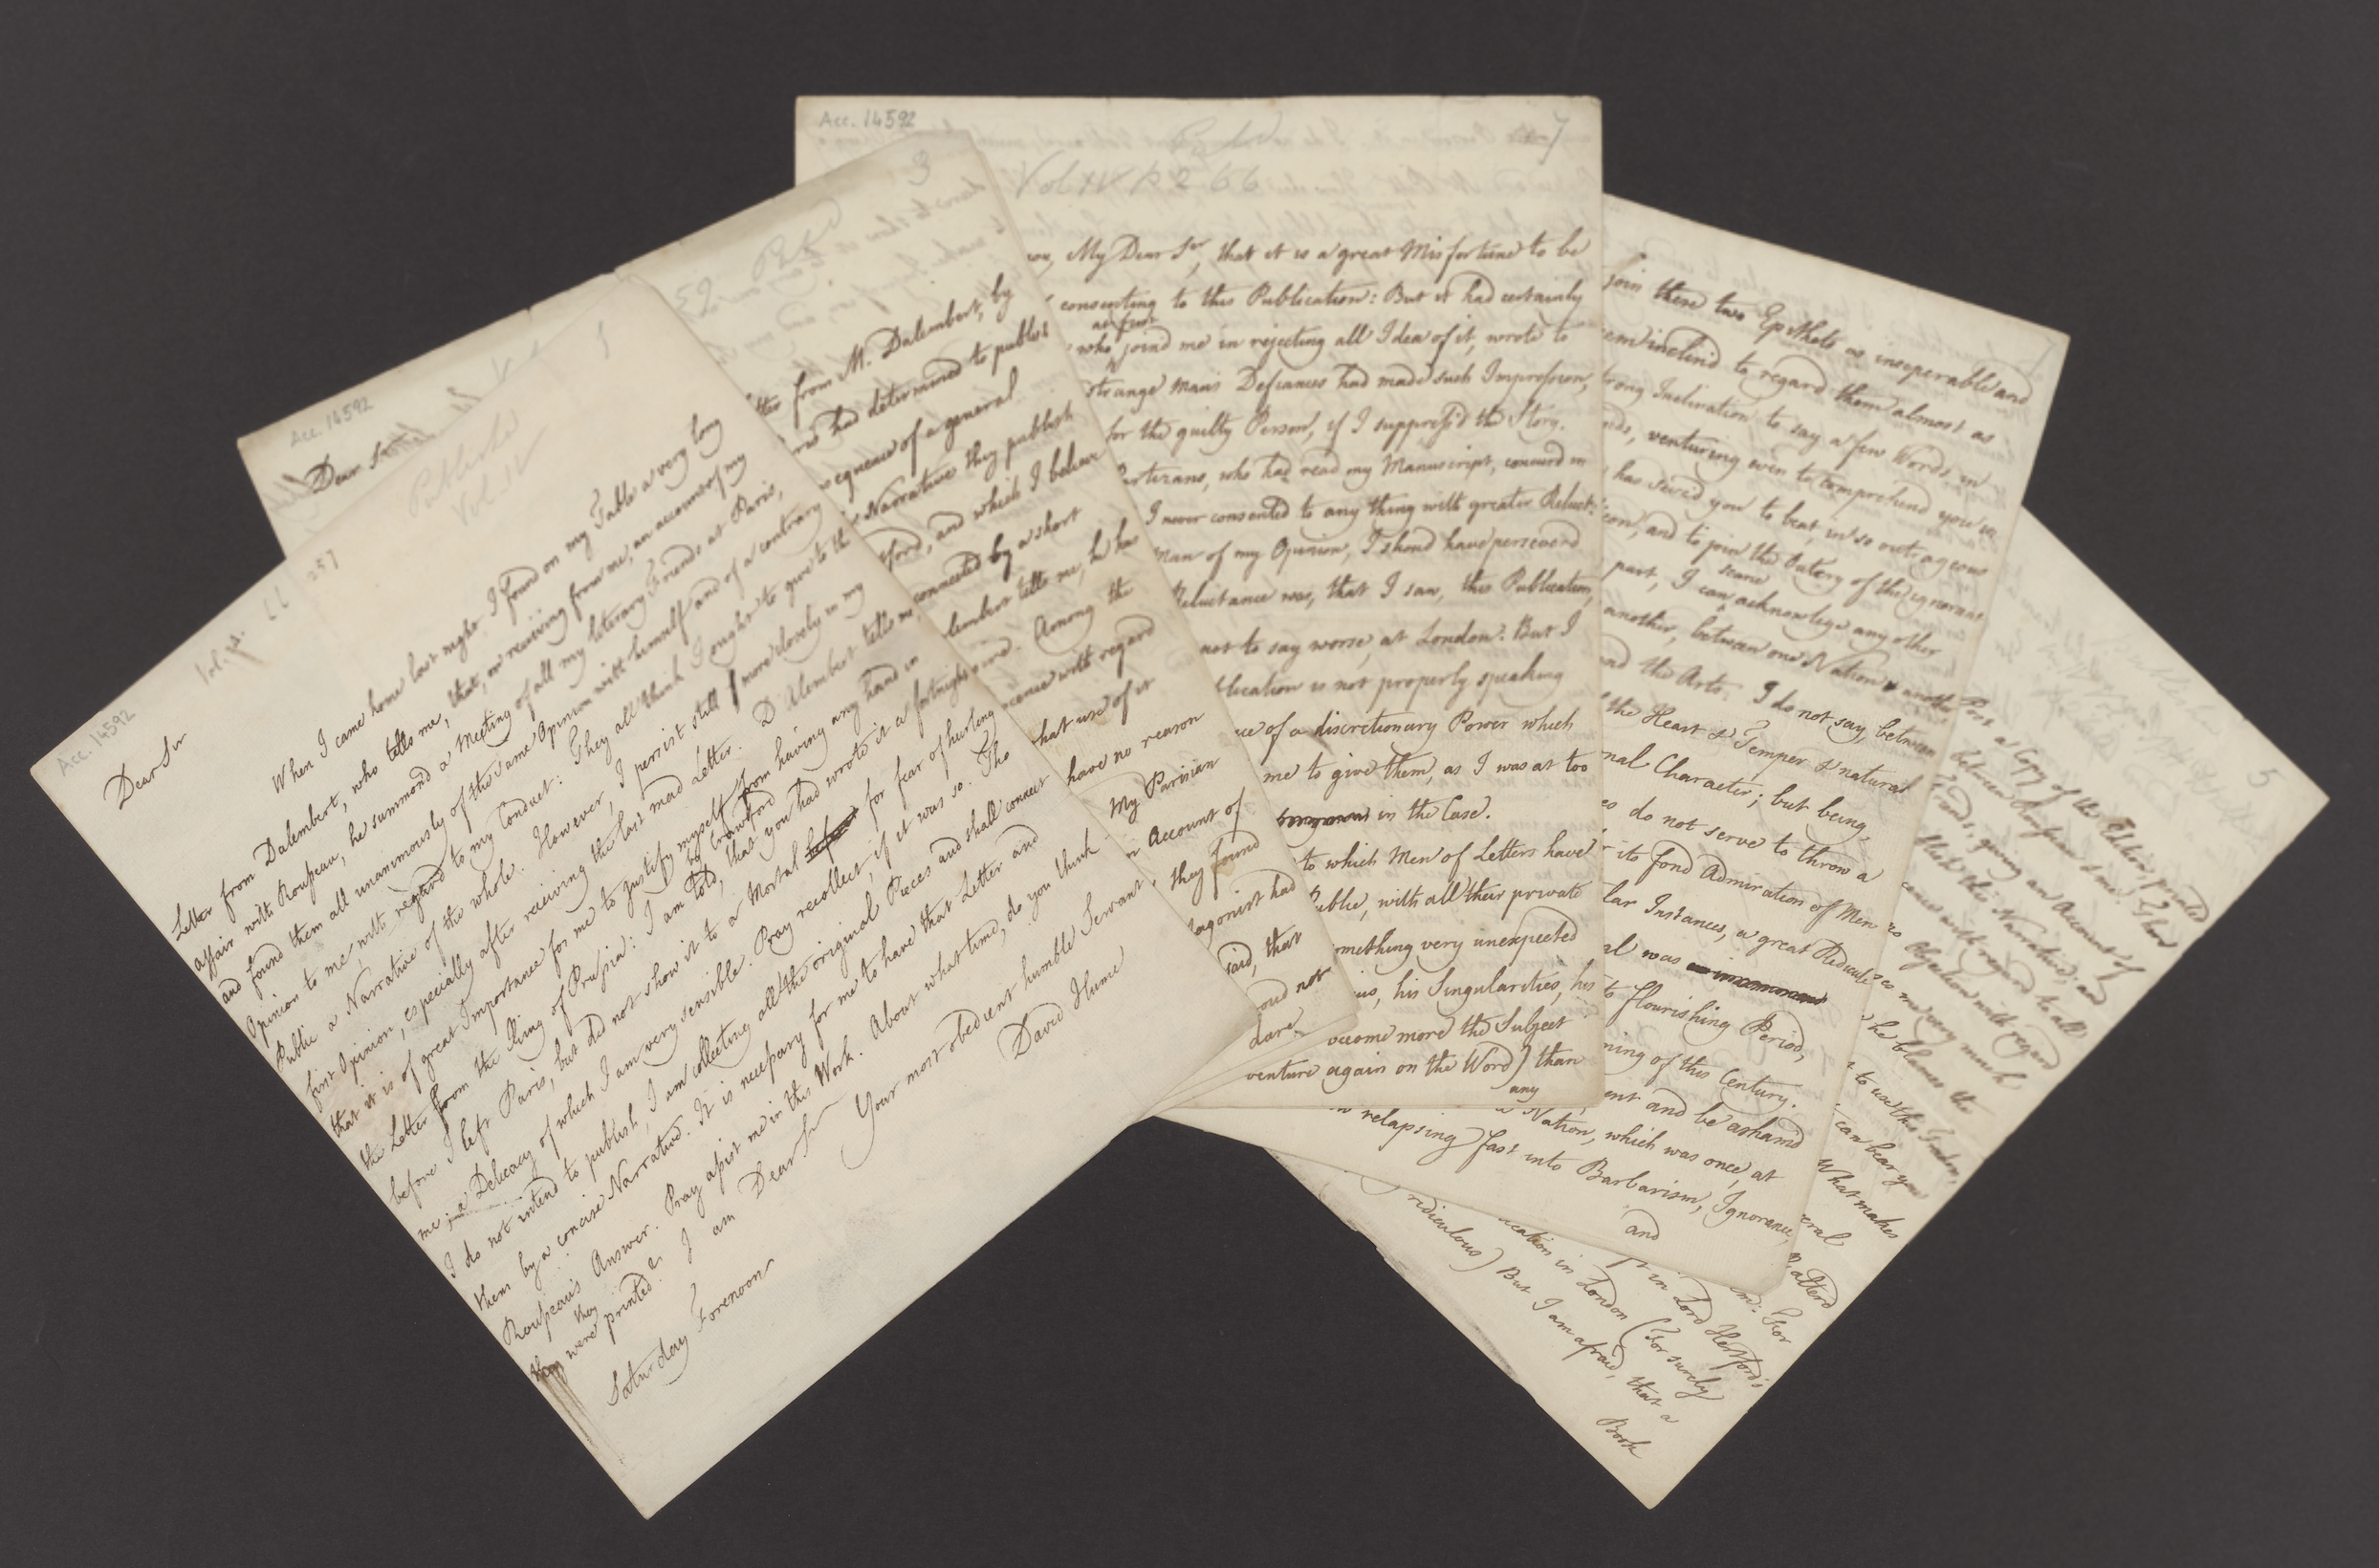 Acc. 14592
Vol. 257
Published
Vol. IV
Dear Sir
When I came home last night I found on my Table a very long
Letter from Dalembert, who tells me, that, on receiving from me, an account of my
affair with Rousseau, he summond a Meeting of all my literary Friends at Paris,
and found them all unanimously of the same Opinion with himself and of a contrary
Opinion to me, with regard to my Conduct: They all think I ought to give to the
Public a Narrative of the whole. However, I persist still more closely in my
first Opinion, especially after receiving the last mad Letter. D'Alembert tells me,
that it is of great Importance for me to justify myself from having any hand in
the Letter from the King of Prussia: I am told, by Crawford that you had wrote it a fortnight
before I left Paris, but did not show it to a Mortal for fear of hurting
me; a Delicacy of which I am very sensible. Pray recollect, if it was so. Tho
I do not intend to publish, I am collecting all the original Pieces and shall connect
them by a concise Narrative. It is necessary for me to have that Letter and
Rousseau's Answer. Pray assist me in this Work. About what time, do you think,
they
were printed? I am Dear Sir
Your most obedient humble Servant,
David Hume
Saturday Forenoon
Acc. 14592
Dear Sir
3
from M. Dalembert, by
had determined to publish
sequence of a general
Narrative they publish
and which I believe
connected by a short
tells me, he has
Among the
with regard
that use of it
have no reason
My Parisian
Account of
they found
had
said, that
not
dare
Acc. 14592
7
Vol IV P 266
My Dear Sir, that it is a great Misfortune to be
consenting to this Publication: But it had certainly
at first
who joind me in rejecting all Idea of it, wrote to
strange man's Defiances had made such Impression,
for the guilty Person, if I suppress'd the Story.
who had read my Manuscript, concurd in
I never consented to any thing with greater Reluct-
man of my Opinion, I shoud have perseverd
Reluctance was, that I saw, this Publication,
not to say worse, at London. But I
is not properly speaking
of a discretionary Power which
me to give them, as I was at too
in the Case.
to which Men of Letters have
with all their private
something very unexpected
his Singularities, his
become more the Subject
venture again on the Word) than
any
join these two Epithets as inseperable and
inclin'd to regard them almost as
strong Inclination to say a few Words in
venturing even to comprehend you in
has seiz'd you to beat, in so outrageous
and to join the Outcry of the ignorant
part, I can scarce acknowlege any other
another, between one Nation & another,
and the Arts. I do not say, between
the Heart & Temper & natural
Character; but being,
do not serve to throw a
its fond Admiration of Men
Instances, a great Ridicule
was
flourishing Period,
of this Century.
and be ashamd
Nation, which was once, at
relapsing fast into Barbarism, Ignorance,
and
5
Post a Copy of the Edition, printed
between Rousseau & me.
giving an Account of
this Narrative; and
with regard to all
Objection with regard
me very much
he blames the
to use this Freedom,
can bear you
What makes
For
in Lord Hertford's
in London (For surely
ridiculous) But I am afraid, that a
Book